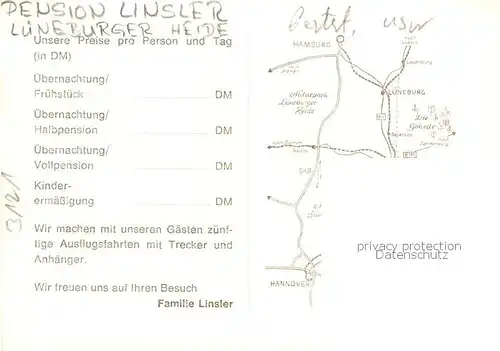 PENSION LINSLER
LÜNEBURGER HEIDE
Unsere Preise pro Person und Tag
(in DM)
Übernachtung/
Frühstück DM
Übernachtung/
Halbpension DM
Übernachtung/
Vollpension DM
Kinder-
ermäßigung DM
Wir machen mit unseren Gästen zünf-
tige Ausflugsfahrten mit Trecker und
Anhänger.
Wir freuen uns auf Ihren Besuch
Familie Linsler
3/12/1
usw
HAMBURG
LÜNEBURG
Naturpark
Lüneburger
Heide
HANNOVER
privacy protection
Datenschutz